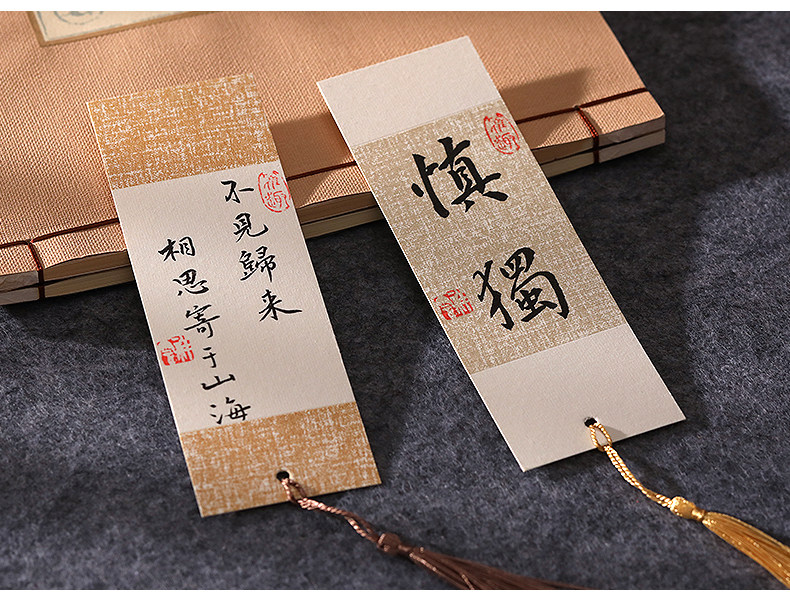 不见歸来
相思寄于山海
慎
獨